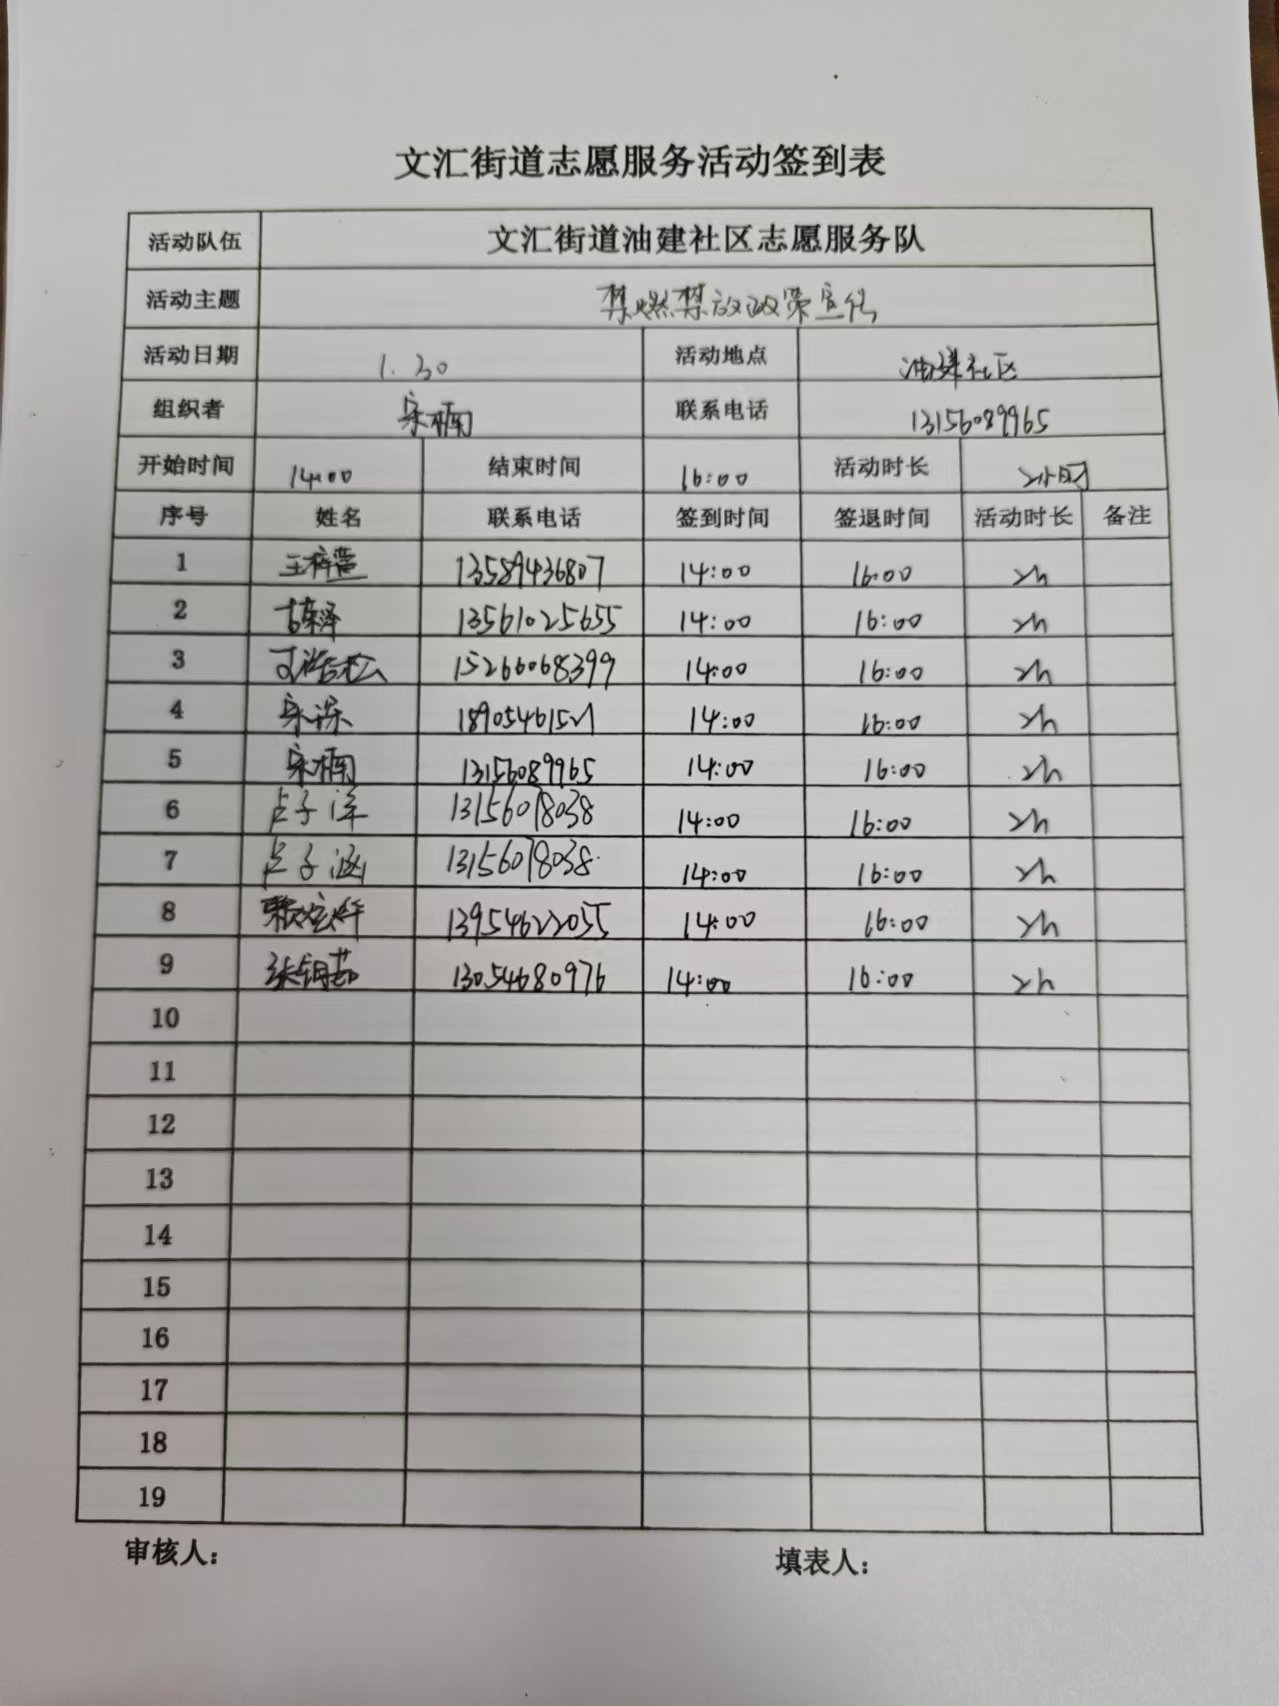 文汇街道志愿服务活动签到表
活动队伍 文汇街道油建社区志愿服务队
活动主题 禁燃禁放政策宣传
活动日期 1.30 活动地点 油建社区
组织者 宋楠 联系电话 13156089965
开始时间 14:00 结束时间 16:00 活动时长 2小时
序号 姓名 联系电话 签到时间 签退时间 活动时长 备注
1 13589436807 14:00 16:00 2h
2 13561025655 14:00 16:00 2h
3 15266068399 14:00 16:00 2h
4 宋深 14:00 16:00 2h
5 宋楠 13156089965 14:00 16:00 2h
6 13156078038 14:00 16:00 2h
7 13156078038 14:00 16:00 2h
8 13954622055 14:00 16:00 2h
9 13054680976 14:00 16:00 2h
10
11
12
13
14
15
16
17
18
19
审核人： 填表人：